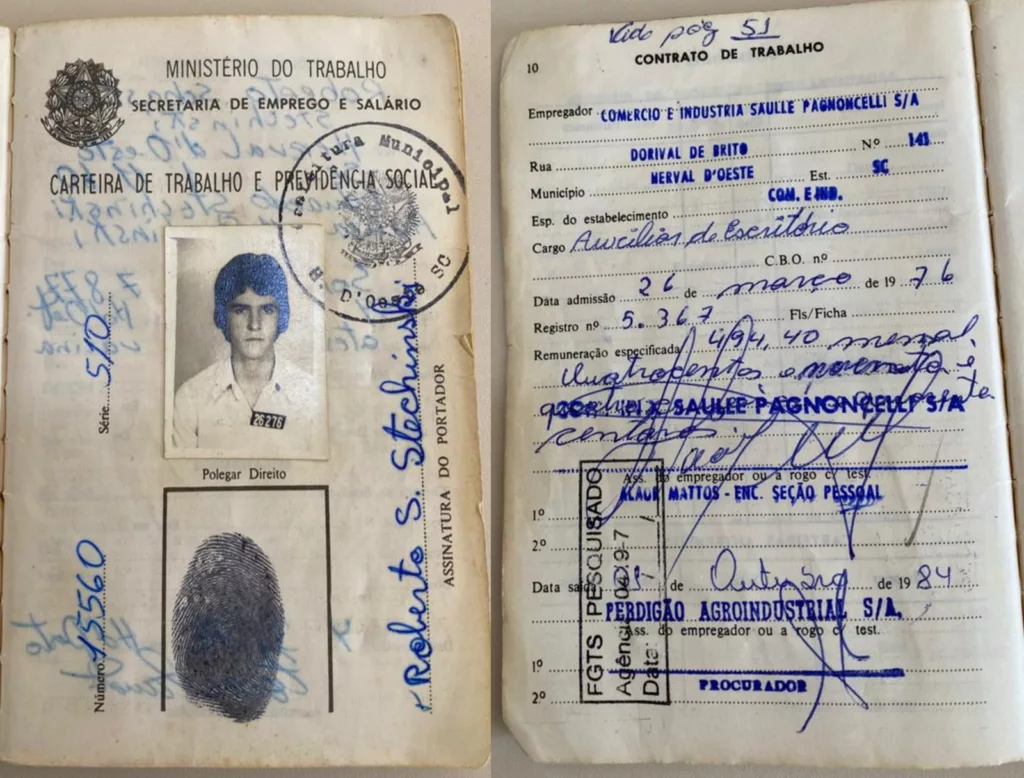 MINISTÉRIO DO TRABALHO
SECRETARIA DE EMPREGO E SALÁRIO
CARTEIRA DE TRABALHO E PREVIDÊNCIA SOCIAL
Prefeitura Municipal
H. D'Oeste SC
26 2 76
Polegar Direito
Série 510
Número 15560
Roberto S. Stechinski
ASSINATURA DO PORTADOR
Vide pág 51
10
CONTRATO DE TRABALHO
Empregador COMERCIO E INDUSTRIA SAULLE PAGNONCELLI S/A
Rua DORIVAL DE BRITO Nº 141
Município HERVAL D'OESTE Est. SC
Esp. do estabelecimento COM. E IND.
Cargo Auxiliar de Escritório
C.B.O. nº
Data admissão 26 de março de 19 76
Registro nº 5.367 Fls/Ficha
Remuneração especificada 494,40 mensal,
Quatrocentos e noventa e
quatro
centavos.
SAULLE PAGNONCELLI S/A
Ass. do empregador ou a rogo c/ test.
MATTOS - ENC. SEÇÃO PESSOAL
1º
2º
Data saída de Outubro de 19 84
PERDIGÃO AGROINDUSTRIAL S/A.
Ass. do empregador ou a rogo c/ test.
1º
PROCURADOR
2º
FGTS PESQUISADO
Agência 0429-7
Data: / /